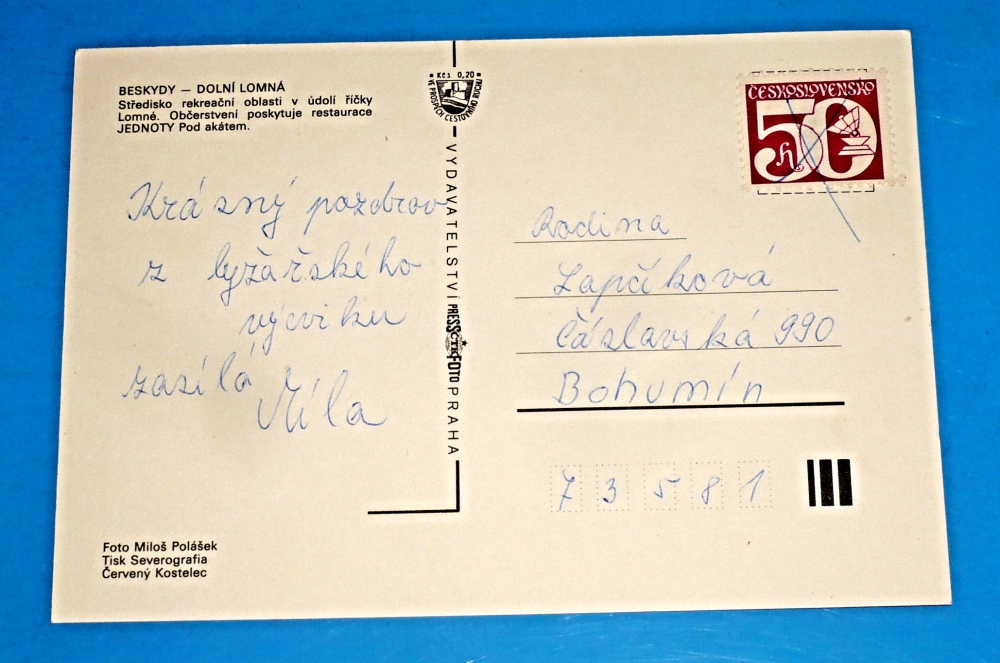 BESKYDY — DOLNÍ LOMNÁ
Středisko rekreační oblasti v údolí říčky
Lomné. Občerstvení poskytuje restaurace
JEDNOTY Pod akátem.
Krásný pozdrav
z lyžařského
výcviku
zasílá Míla
Foto Miloš Polášek
Tisk Severografia
Červený Kostelec
Kčs 0,20
VE PROSPĚCH CESTOVNÍHO RUCHU
VYDAVATELSTVÍ PRESSFOTO PRAHA
ČTK
ČESKOSLOVENSKO
50
h
Rodina
Lapčíková
Čáslavská 990
Bohumín
73581